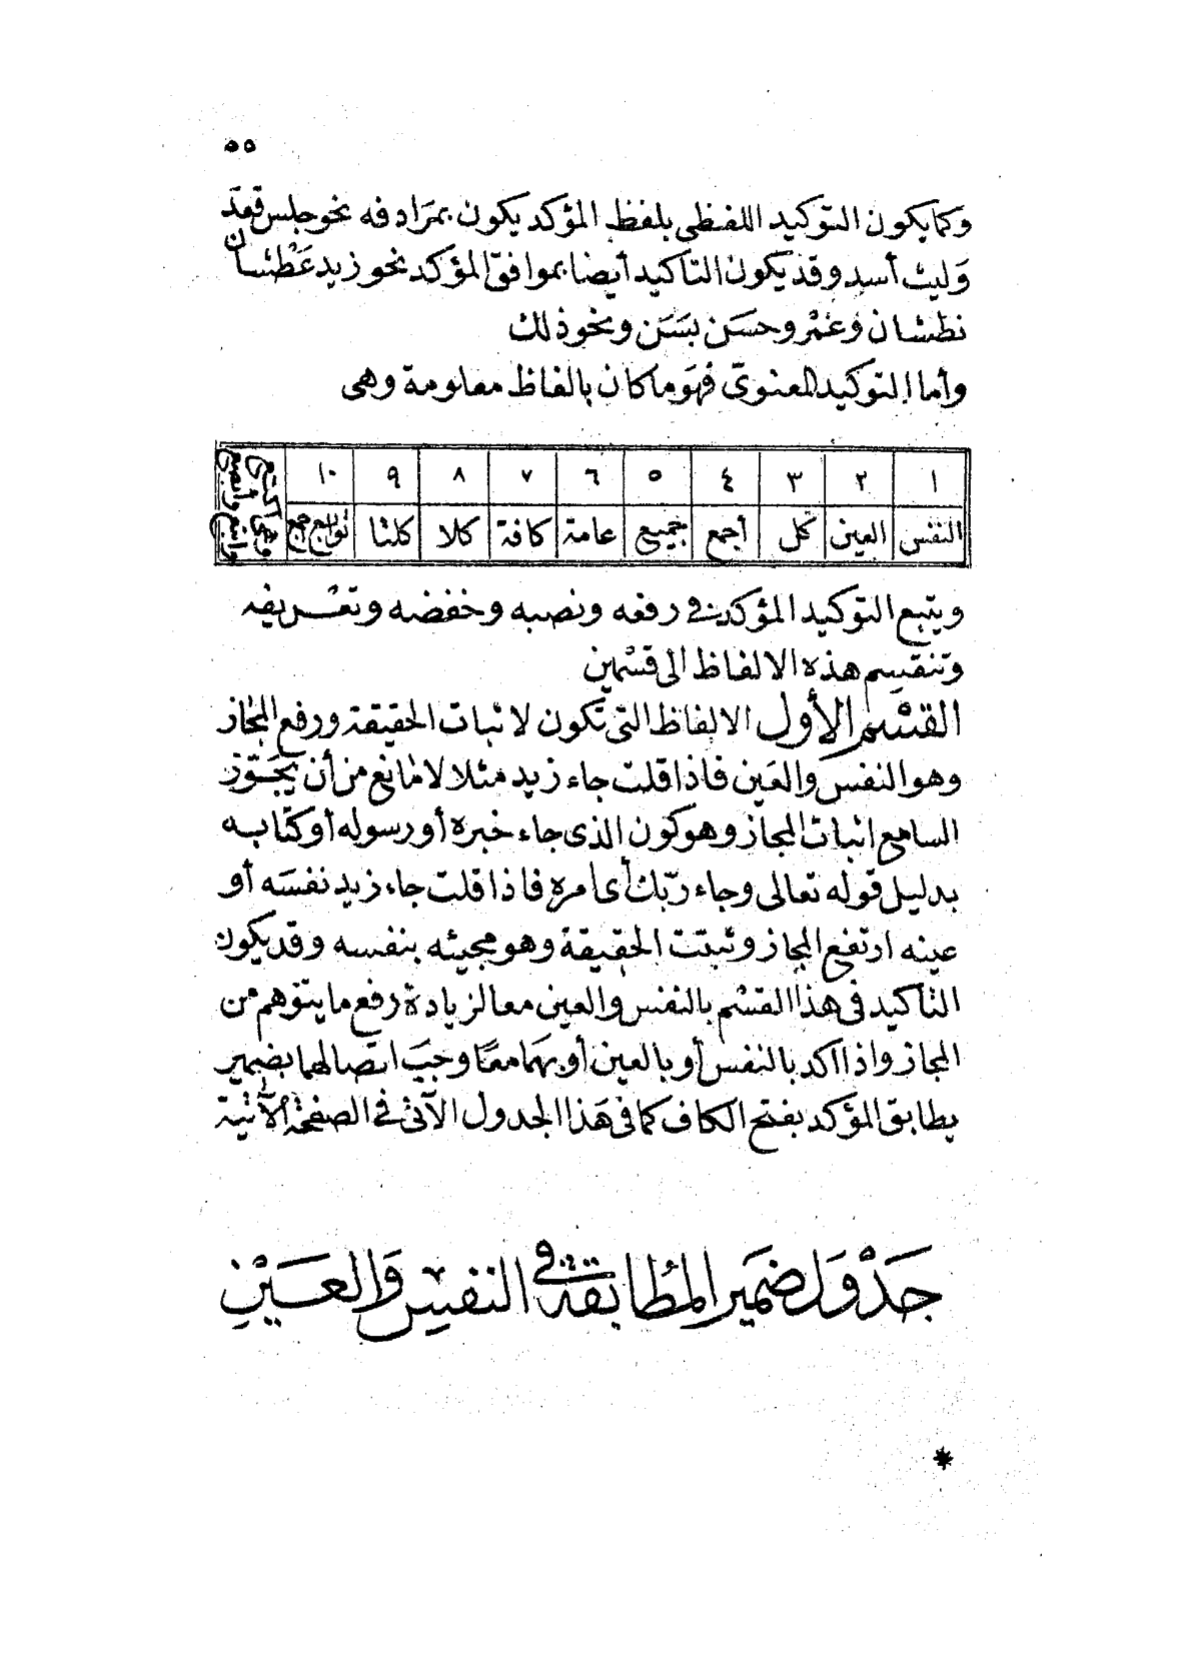 ٥٥
وكما يكون التوكيد اللفظى بلفظ المؤكد يكون بمرادفه نحو جلس قعد
وليث أسد وقد يكون التاكيد أيضا بموافق المؤكد نحو زيد عَطْشان
نطشان وعَمْر وحسَن بسَن ونحو ذلك
وأما التوكيد المعنوىّ فهَو ما كان بالفاظ معلومة وهى
١ ٢ ٣ ٤ ٥ ٦ ٧ ٨ ٩ ١٠
النفس العين كل أجمع جميع عامة كافة كلا كلتا توابع أجمع وهى أكتع وأبصع وابتع
ويتبع التوكيد المؤكد في رفعه ونصبه وخفضه وتعريفه
وتنقسِم هذه الالفاظ الى قسْمين
القسْم الأول الالفاظ التى تكون لاثبات الحقيقة ورفع المجاز
وهو النفس والعَين فاذا قلت جاء زيد مثلا لامانع من أن يجَوّز
السامع اثبات المجاز وهو كون الذى جاء خبره أو رسوله أو كتابه
بدليل قوله تعالى وجاء ربّك أى امره فاذا قلت جاء زيد نفسَه أو
عينه ارتفع المجاز وثبتت الحقيقة وهو مجيئه بنفسه وقد يكون
التأكيد فى هذا القسْم بالنفس والعين معا لزيادة رفع ما يتوهم من
المجاز واذا اكد بالنفس أو بالعين أو بهما معًا وجبَ اتصالهما بضمير
يطابق المؤكد بفتح الكاف كما فى هَذا الجدول الآتى فى الصفحة الآتية
جَدْوَل ضمَير المُطابقة في النفسِ وَالعَــيْنِ
*